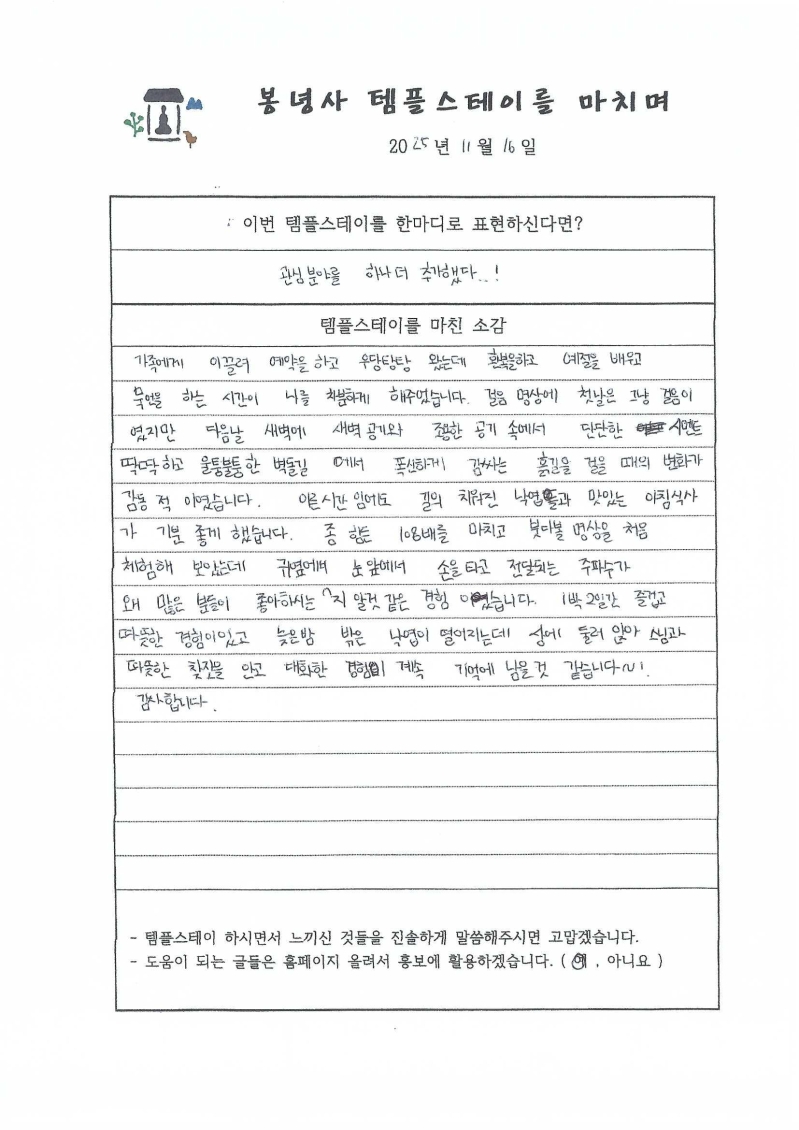 봉녕사 템플스테이를 마치며
2025년 11월 16일
이번 템플스테이를 한마디로 표현하신다면?
관심분야를 하나 더 추가했다..!
템플스테이를 마친 소감
가족에게 이끌려 예약을 하고 우당탕탕 왔는데 환복을하고 예절을 배우고
묵언을 하는 시간이 나를 차분하게 해주었습니다. 걸음 명상에 첫날은 그냥 걸음이
였지만 다음날 새벽에 새벽 공기와 조용한 공기 속에서 단단한 시멘트
딱딱하고 울퉁불퉁한 벽돌길 에서 폭신하게 감싸는 흙길을 걸을 때의 변화가
감동 적 이였습니다. 이른시간 임에도 길의 치워진 낙엽들과 맛있는 아침식사
가 기분 좋게 했습니다. 종 향든 108배를 마치고 붓다볼 명상을 처음
체험해 보았는데 귀옆에서 눈 앞에서 손을 타고 전달되는 주파수가
왜 많은 분들이 좋아하시는지 알것 같은 경험 이였습니다. 1박 2일간 즐겁고
따뜻한 경험이있고 늦은밤 밖은 낙엽이 떨어지는데 성에 둘러 앉아 스님과
따뜻한 찻잔을 안고 대화한 경험이 계속 기억에 남을것 같습니다~!
감사합니다.
- 템플스테이 하시면서 느끼신 것들을 진솔하게 말씀해주시면 고맙겠습니다.
- 도움이 되는 글들은 홈페이지 올려서 홍보에 활용하겠습니다. ( 예 , 아니요 )